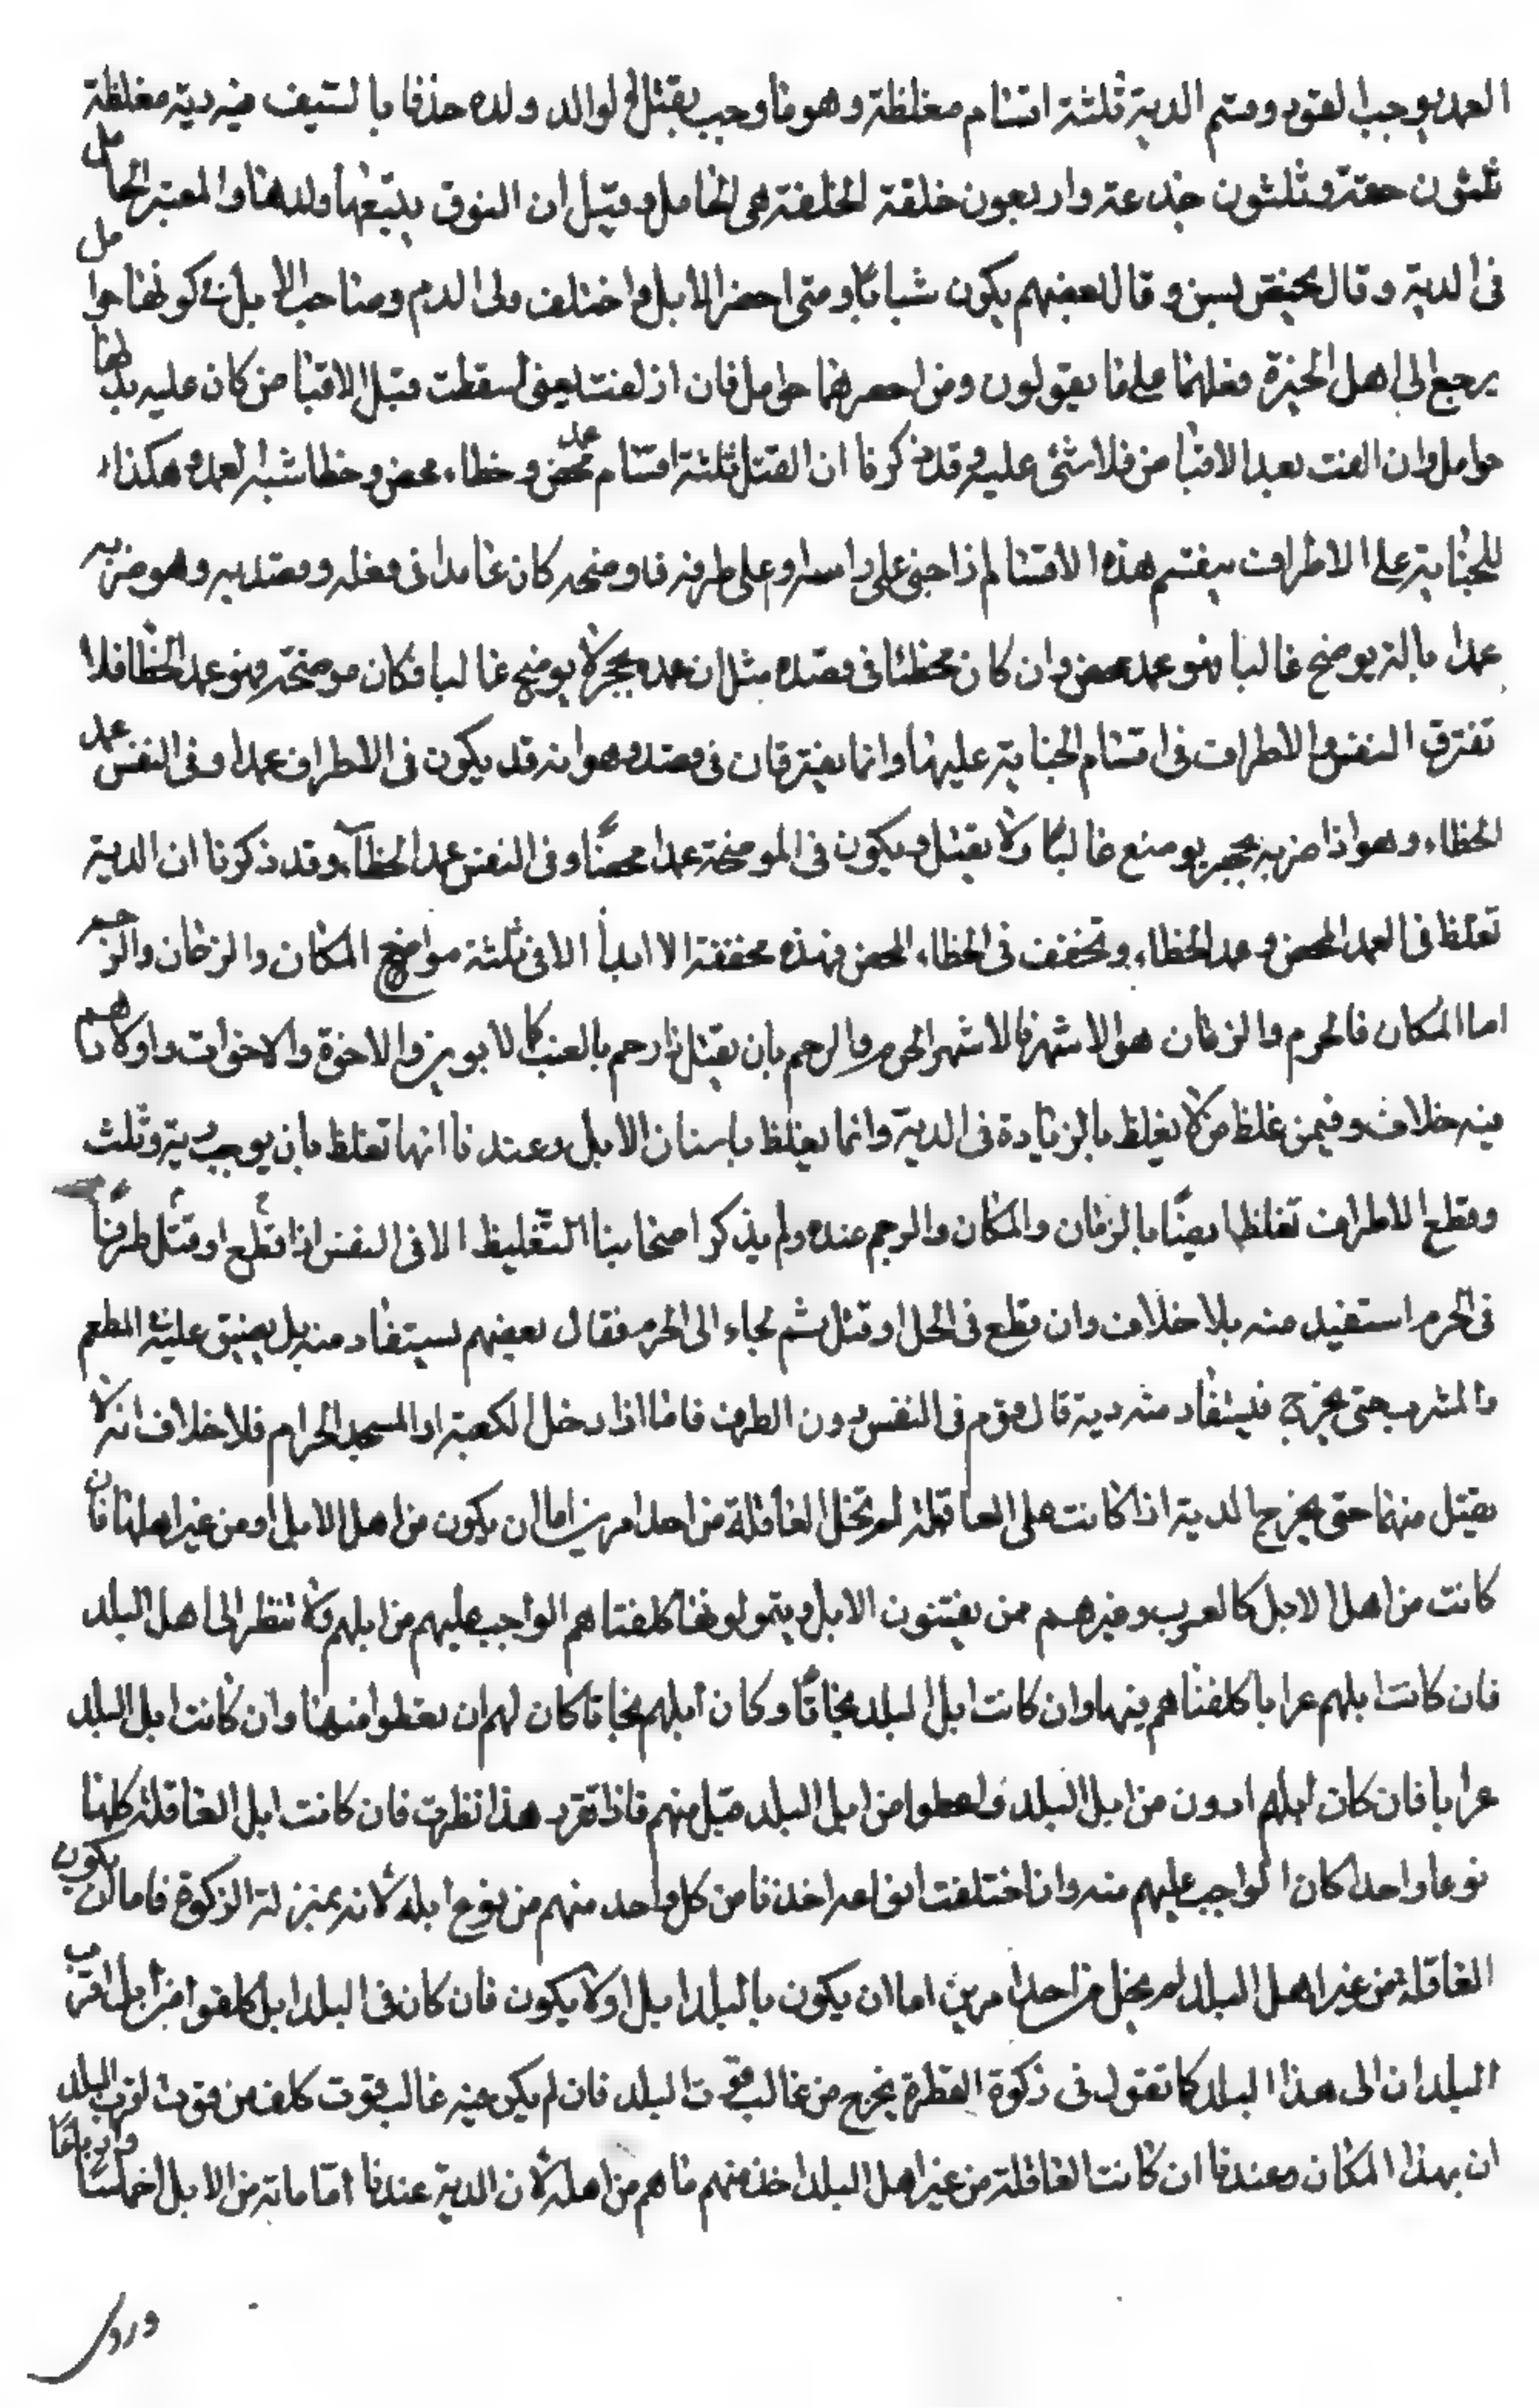 العمد يوجب القود وقسم الدية ثلثة اقسام مغلظة وهو ما وجب بقتل الوالد ولده حذفا بالسيف فيه دية مغلظة
ثلثون حقة وثلثون جذعة واربعون خلفة الخلفة هى الحامل وقيل ان النوق يتبعها ولدها والمعتبر الحامل
فى الدية وقال يختص بسن وقال بعضهم يكون شبابا ومتى احضر الابل واختلف ولى الدم وصاحب الابل فى كونها حوامل
يرجع الى اهل الخبرة فعلهما على ما يقولون ومن احضرهما حوامل فان ازلفت يعنى اسقطت قبل الاقباض كان عليه بدلها
حوامل وان الفت بعد الاقباض فلا شئ عليه وقد ذكرنا ان القتل ثلثة اقسام عمد محض وخطاء محض وخطا شبه العمد وهكذا
الجناية على الاطراف ينقسم هذه الاقسام اذا جنى على راسه او على طرفه فاوضحه كان عامدا فى فعله وقصده وهو ضربه
عمدا بالة يوضح غالبا فهو عمد محض وان كان مخطئا فى قصده مثل ان عمده بحجر لا يوضح غالبا فكان موضحة فهو عمد الخطا فلا
تفترق النفس والاطراف فى اقسام الجناية عليها وانما يفترقان فى قصده وهو انه قد يكون فى الاطراف عمدا وفى النفس عمد
الخطاء وهو اذا ضربه بحجر يوضح غالبا ولا يقتل ويكون فى الموضحة عمدا محضا وفى النفس عمد الخطاء وقد ذكرنا ان الدية
تغلظ فى العمد المحض وعمد الخطاء وتخفف فى الخطاء المحض فهذه مخففة الا ابدا الا فى ثلثة مواضع المكان والزمان والرحم
اما المكان فالحرم والزمان هو الاشهر فالاشهر الحرم والرحم بان يقتل ذا رحم بالعنب كالابوين والاخوة والاخوات واولادهم
فيه خلاف وفيمن غلظ من لا يغلظ بالزيادة فى الدية وانما يغلظ باسنان الابل وعندنا انها تغلظ بان يوجب دية وثلث
وقطع الاطراف تغلظ ايضا بالزمان والمكان والرحم عنده ولم يذكر اصحابنا التغليظ الا فى النفس اذا قطع او قتل طرفا
فى الحرم استفيد منه بلا خلاف وان قطع فى الحل او قتل ثم لجاء الى الحرم فقال بعضهم يستفاد منه بل يضيق عليه المطعم
والمشرب حتى يخرج فيستفاد منه دية قال قوم فى النفس دون الطرف فاما اذا دخل الكعبة او المسجد الحرام فلا خلاف انه لا
يقتل منهما حتى يخرج الدية اذا كانت على العاقلة لم تخل العاقلة من احد امرين اما ان يكون من اهل الابل او من غير اهلها فان
كانت من اهل الابل كالعرب وغيرهم من يقتنون الابل ويتمولونها كلفناهم الواجب عليهم من ابلهم ولا ننظر الى اهل البلد
فان كانت ابلهم عرابا كلفناهم فيها وان كانت ابل البلد بخاتا وكان ابلهم بخاتا كان لهم ان يعطوا منها وان كانت ابل البلد
عرابا فان كان ابلهم ادون من ابل البلد واعطوا من ابل البلد قبل منهم فاذا تقرر هذا نظرت فان كانت ابل العاقلة كلها
نوعا واحدا كان الواجب عليهم منه وان اختلفت انواعه اخذنا من كل واحد منهم من نوع ابله لانه بمنزلة الزكوة فاما ان يكون
العاقلة من غير اهل البلد لم يخل من احد امرين اما ان يكون بالبلد ابل او لا يكون فان كان فى البلد ابل كلفوا من ابل اقرب
البلدان الى هذا البلد كما نقول فى زكوة الفطرة يخرج من غالب قوت البلد فان لم يكن فيه غالب قوت كلف من قوت اقرب البلد
ان بهذا المكان وعندنا ان كانت العاقلة من غير اهل البلد اخذ منهم ما هم من اهله لان الدية عندنا اما مائة من الابل اخماسا وارباعا
وروى